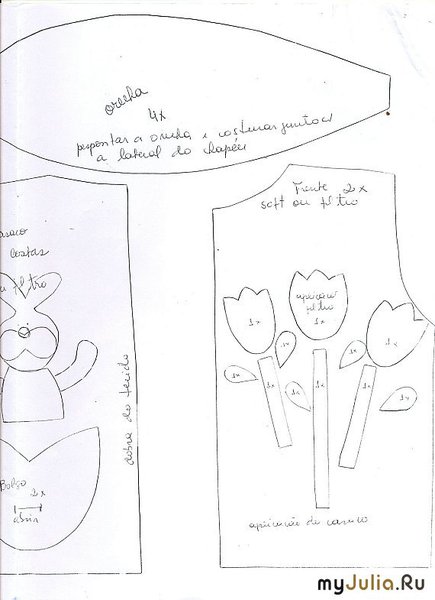 orelha
4x
pespontar a orelha e costurar junto c/
a lateral do chapéu
casaco
costas
filtro
dobra do tecido
Bolso
2x
abrir
Frente 2x
soft ou filtro
aplicação
filtro
1x
1x
1x
1x
1x
1x
1x
1x
1x
1x
aplicação do casaco
myJulia.Ru